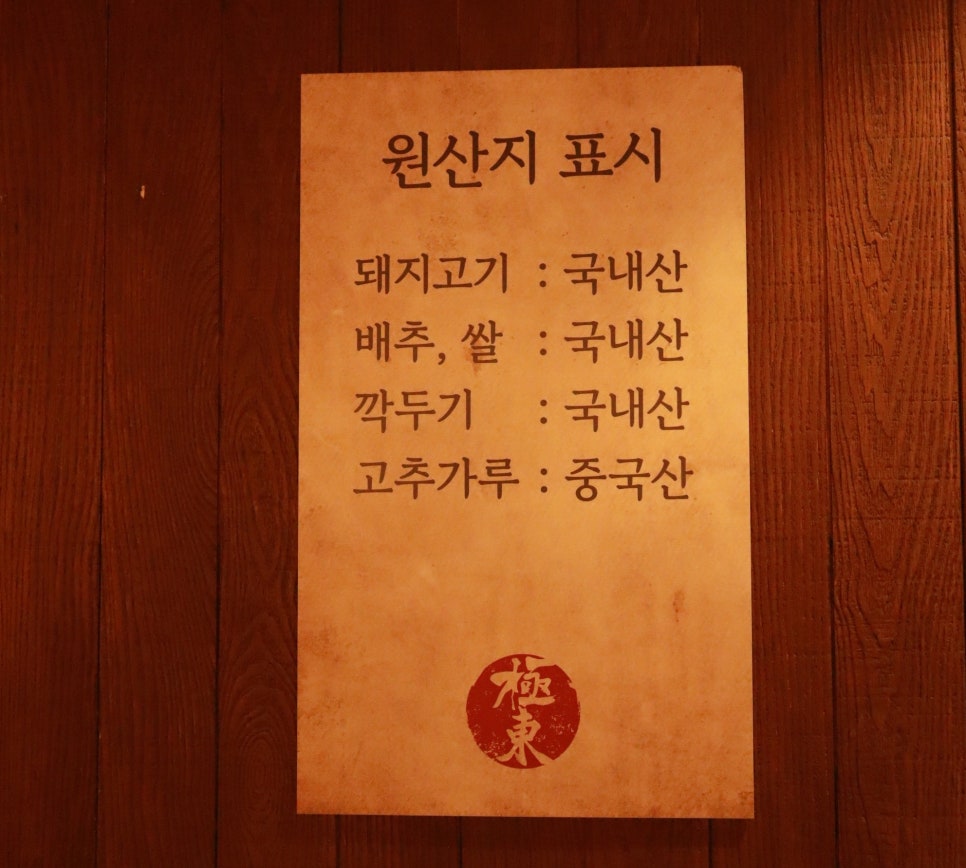 원산지 표시
돼지고기 : 국내산
배추, 쌀 : 국내산
깍두기 : 국내산
고추가루 : 중국산
極
東